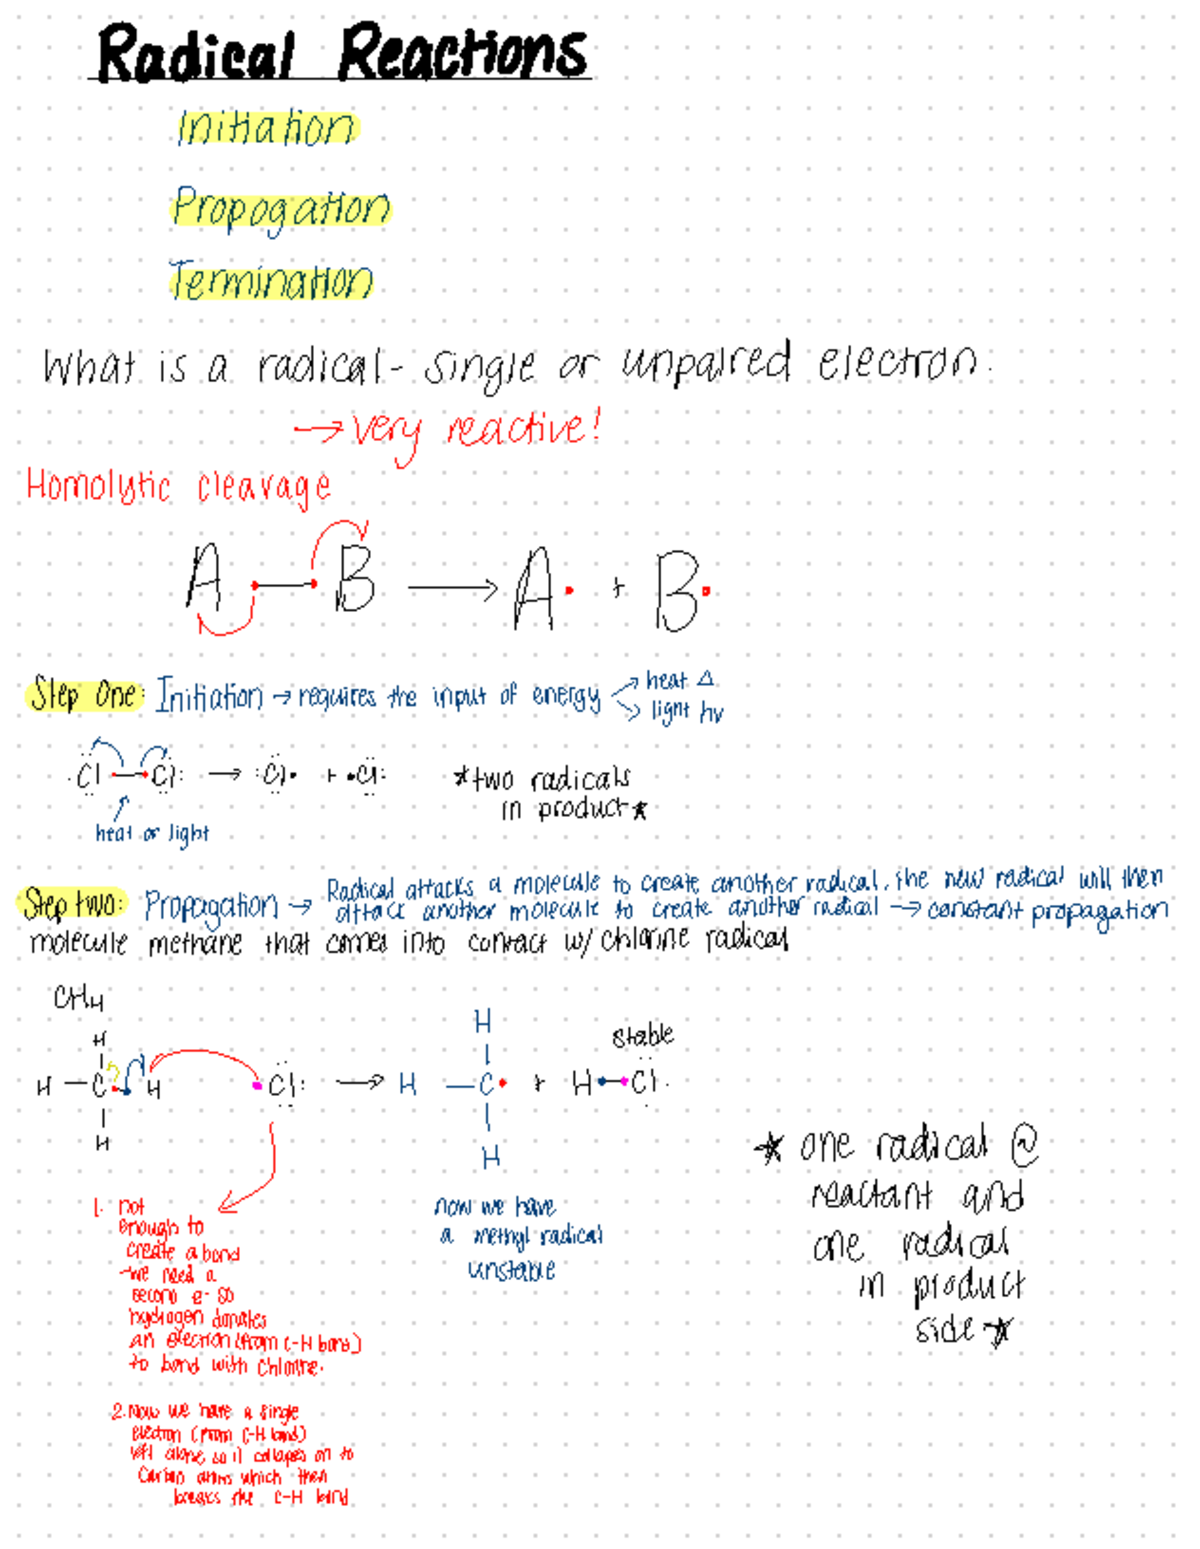 Radical Reactions
Initiation
Propogation
Termination
What is a radical- single or unpaired electron.
→ very reactive!
Homolytic cleavage
A — B → A• + B•
Step One: Initiation → requires the input of energy
heat Δ
light hv
:Cl — Cl: → :Cl• + •Cl:
*two radicals
in product*
heat or light
Step two: Propagation → Radical attacks a molecule to create another radical. The new radical will then
attack another molecule to create another radical → constant propagation
molecule methane that comes into contact w/ chlorine radical
CH4
H
H
stable
H — C H •Cl: → H — C• + H — Cl:
H
H
1. not
enough to
create a bond
-we need a
second e- so
hydrogen donates
an electron (from C-H bond)
to bond with chlorine.
2. Now we have a single
electron (from C-H bond)
left alone so it collapes on to
Carbon atoms which then
breaks the C-H bond
now we have
a methyl radical
unstable
* one radical @
reactant and
one radical
in product
side *